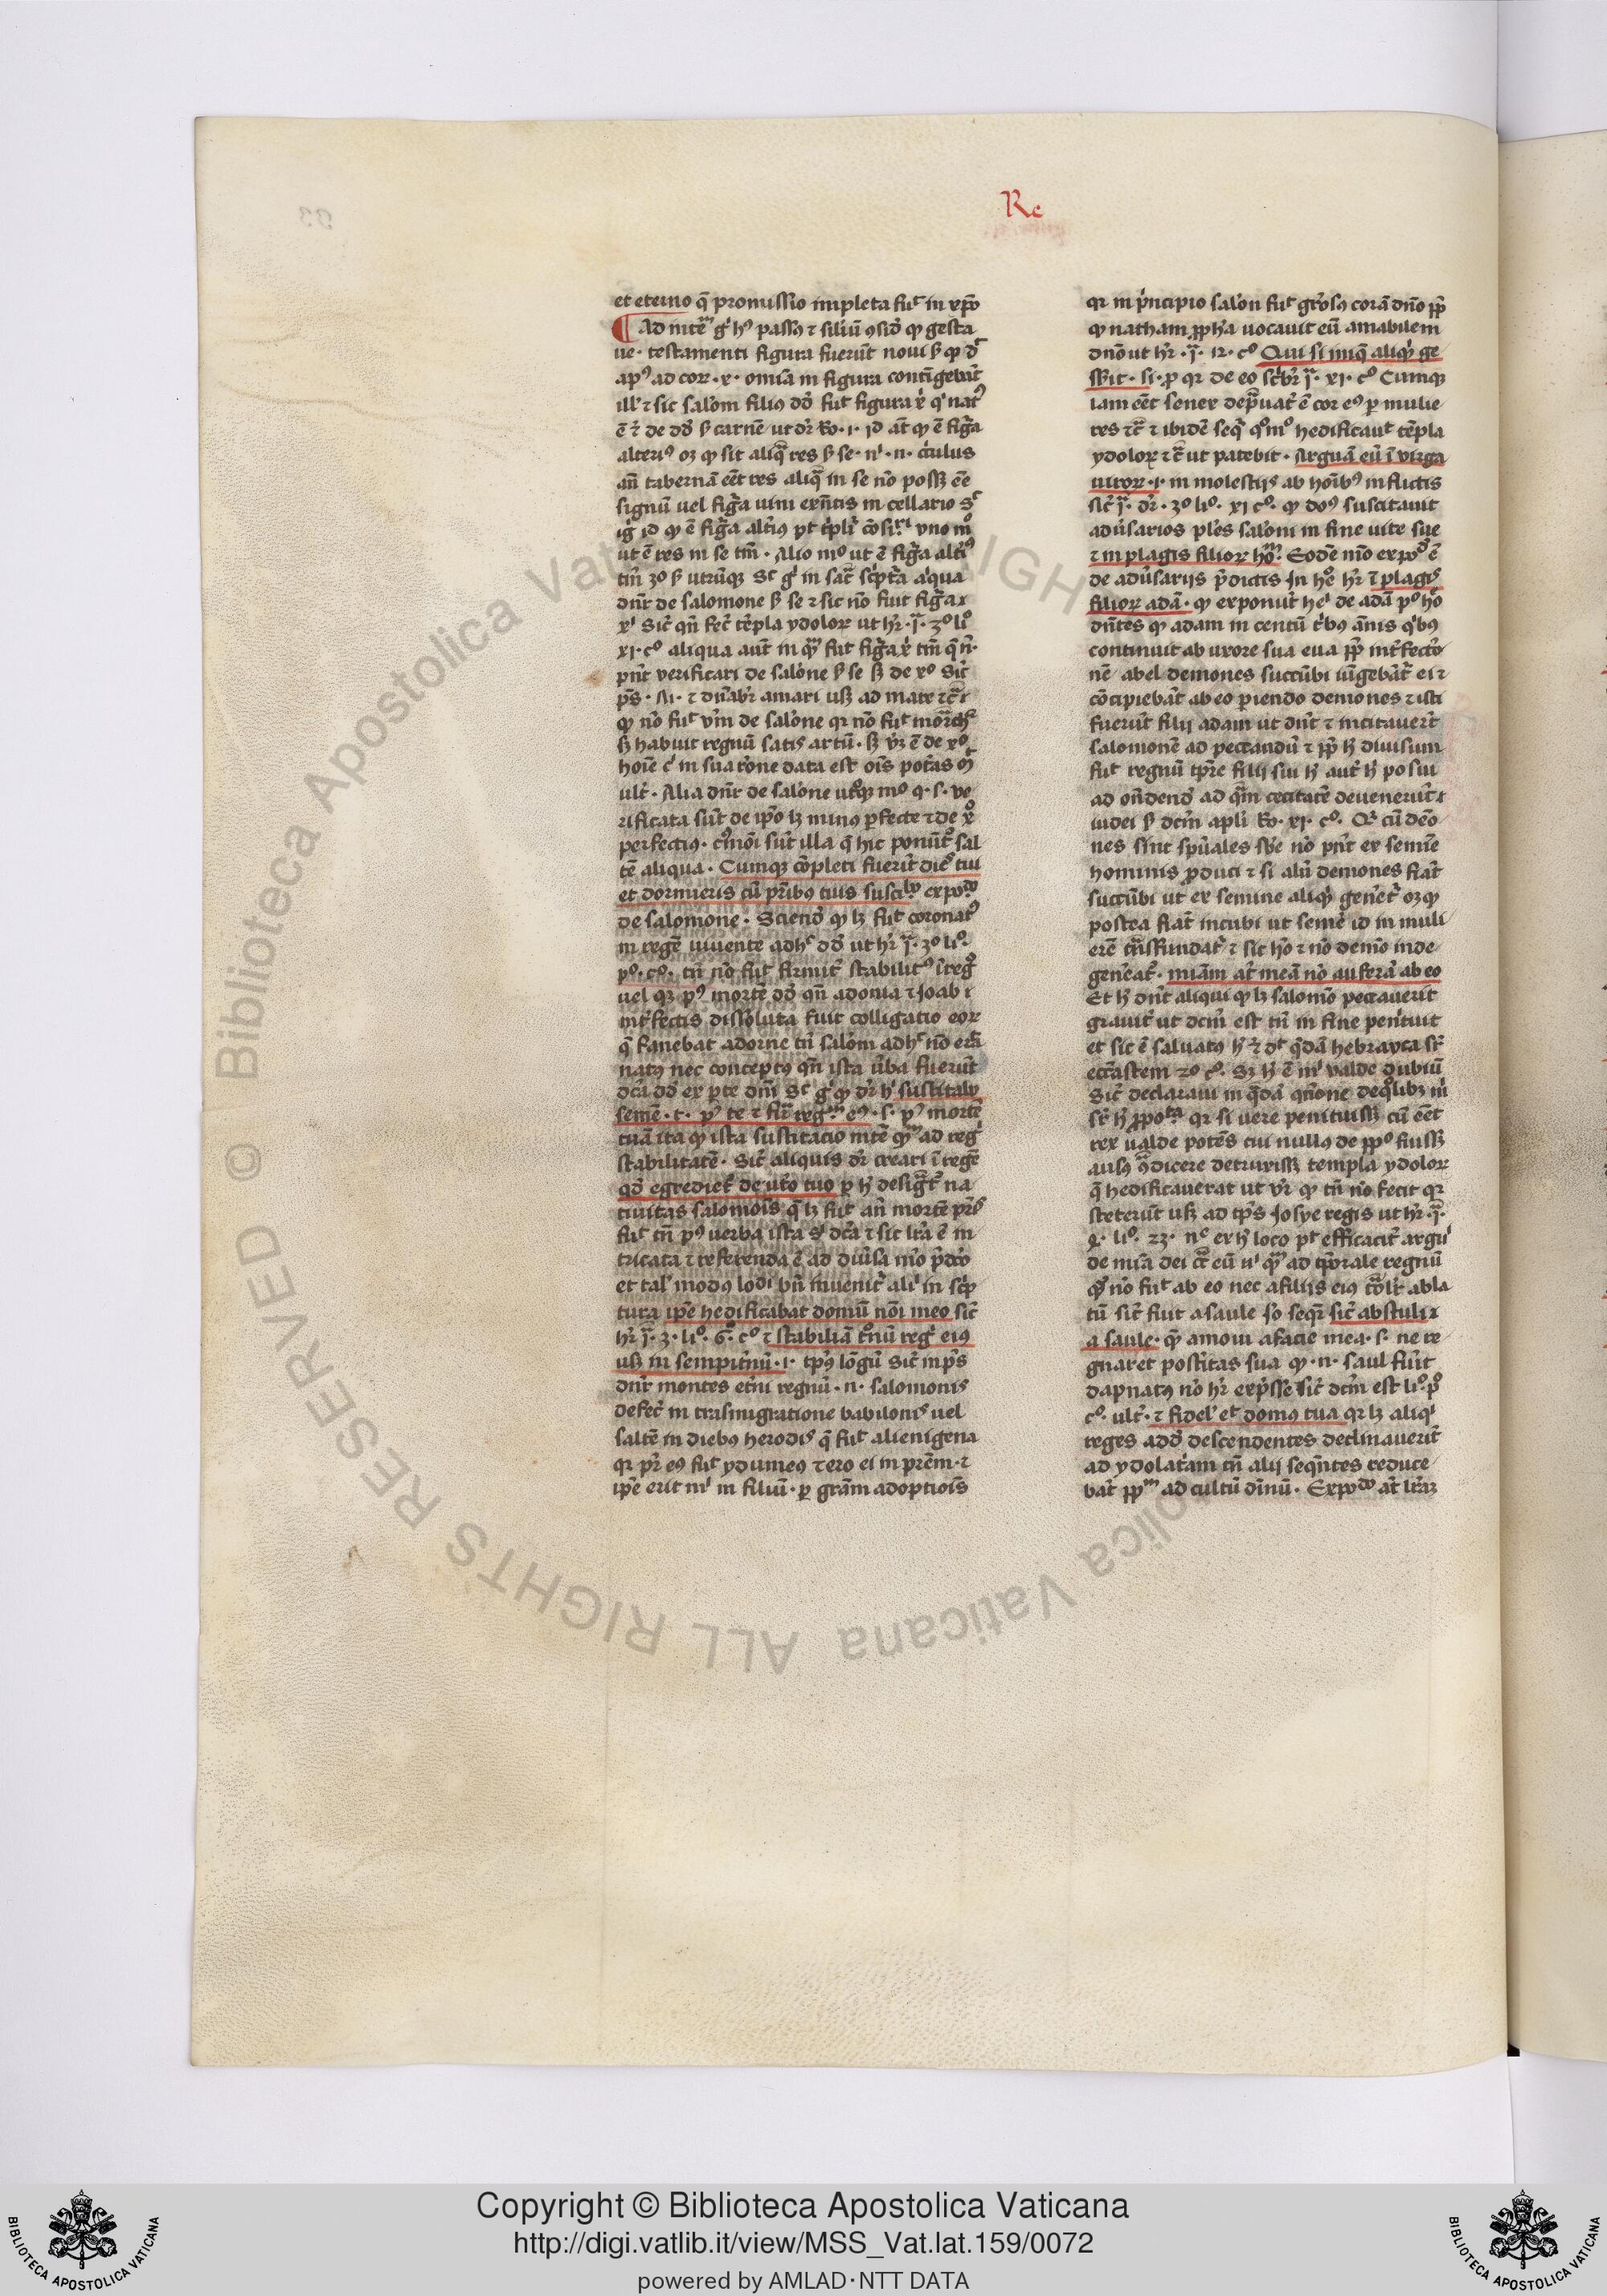 Re
et eterno q̄ promissio impleta fuit in xp̄o
Ad intē gͥ hꝰ passꝰ ⁊ siliū ꝯsid̄ ꝙ gesta
ue · testamenti figura fuerūt noui ẜ ꝙ dͨ
apꝰ ad cor · x · omīa in figura contīgebāt
ill' ⁊ sic salom̄ filiꝰ dd̄ fuit figura xͥ qͥ natꝰ
de dd̄ ẜ carnē ut dr̄ Ro · i · id at̄ ꝙ ē figͣa
alteriꝰ oꝫ ꝙ sit aliqͣ res ẜ se · nͥ · n · circulus
an̄ tabernā eēt res aliqͣ in se nō posset eē
signū uel figͣa uini exn̄tis in cellario
ut ē res in se tm̄ · Alio mº ut ē figͣa altiꝰ
tm̄ 3º ẜ utrūqꝫ
dn̄r de salomone ẜ se ⁊ sic nō fuit figͣa
xͥ sic̄ qn̄ fec̄ tēpla ydoloꝝ ut hr̄ · j̄ · 3º liº
xi · cº aliqua aut̄ in qͣ fuit figͣa xͥ tm̄
pn̄t uerificari de salōne ẜ se ẜꝫ de xº sic̄
pˢ · et dn̄abr̄ amari usꝫ ad mare ⁊c̄
ꝙ nō fuit v̄m de salōne qr nō fuit
sꝫ habuit regnū satis artū · sꝫ v̄ꝫ ē de xº
hoīe cͥ in sua rōne data est oīs potās
ult̄ · Alia dn̄r de salōne utōqꝫ mº q · s · ve
rificata sūt de ip̄o lꝫ minꝰ ꝑfecte ⁊ de xº
perfectiꝰ · sūt illa q̄ hic ponūtͬ sal
tē aliqua · Cumqꝫ cōpleti fuerīt dies tui
et dormieris cū pr̄ibꝰ tuis
de salomone · Sciend̄ ꝙ lꝫ fuit coronatꝰ
in regē uiuente adhͨ dd̄ ut hr̄ j̄ · 3º liº
pº · cº · tn̄ nō fuit firmit̄ stabilitꝰ ī regº
uel qꝫ pꝰ mortē dd̄ qn̄ adonia ⁊ Joab
int̄fectis dissoluta fuit colligatio eoꝝ
q̄ fauebat adonie tn̄ salom̄ adhͨ nō
natꝰ nec conceptꝰ qn̄ ista ūba fuerūt
dc̄a dd̄ ex ꝑte dn̄i
semē · t · pꝰ te ⁊ eiꝰ · s · pꝰ mortē
tuā ita ꝙ ista suscitacio ad regͥ
stabilitatē · Sic̄ aliquis dr̄ creari ī regē
qd̄ egredietͬ de ūto tuo ꝑ hͦ desigͣtͬ na
tiuitas salomōis q̄ lꝫ fuit an̄ mortē pr̄is
fuit tn̄ pꝰ uerba ista dc̄a ⁊ sic lr̄a ē in
tricata ⁊ referenda ē ad diūsa mō p̄dc̄o
et tal' modꝰ lodi bn̄ inuenit̄ ali' in scͥp
tura ip̄e hedificabat domū nōi meo sic̄
hr̄ j̄ · 3 · liº · 6 · cº ⁊ stabiliā tͦnū regͥ eiꝰ
usꝫ in sempitnū · i · tp̄ꝰ lōgū sic̄ in pˢ
dn̄r montes et̄ni regnū · n · salomonis
defec̄ in trāsmigratione babilonis uel
saltē in diebꝰ herodis q̄ fuit alienigena
qr pr̄ eiꝰ fuit ydumeꝰ ⁊ ero ei in prēm · ⁊
ip̄e erit mͥ in filiū · ꝑ grām adoptiōis
qr in pͥncipio salon̄ fuit grōsꝰ corā dn̄o ꝓp̄
ꝙ natham ꝓph̄a uocauit eū amabilem
dn̄o ut hr̄ · j̄ · 12 · cº Qui si iniq̄ aliqͥd ge
sserit · si · ꝑ qr de eo scͥbr̄ j̄ · xi · cº Cumqꝫ
iam eēt senex depͣuat̄ ē cor eiꝰ ꝑ mulie
res ⁊c̄ ⁊ ibidē seqͥ qºmº hedificauit tēpla
ydoloꝝ ⁊c̄ ut patebit · Arguā eū ī virga
uiroꝝ · i · in molestijs ab hoībꝰ inflictis
sic̄ j̄ · dr̄ · 3º liº · xi cº · ꝙ dōꝰ suscitauit
adūsarios ples salōni in fine uite sue
⁊ in plagis filioꝝ hoīm · Eodē mō expoᵈ ē
de adūsarijs p̄dictis In heº hr̄ ī plagis
filioꝝ adā · ꝙ exponūt heͥ de adā pº hō
dn̄tes ꝙ adam in centū tͥbꝰ ānis qͥbꝰ
continuit ab uxore sua eua ꝓp̄ int̄fectō
nē abel demones succūbi iūgebātͬ ei ⁊
cōcipiebāt ab eo pariendo demones ⁊ isti
fuerūt filij adam ut dn̄t ⁊ incitauerūt
salomonē ad peccandū ⁊ ꝓp̄ hͦ diuisum
fuit regnū tp̄re filij sui hͦ aut̄ hͦ posui
ad on̄dend̄ ad qͣm cecitatē deuenerūt
iudei ẜ dcm̄ apl̄i Ro · xi · cº · Qꝫ cū demō
nes sint spūales sb̄e nō pn̄t ex semīe
hominis ꝓduci ⁊ si alīi demones fiāt
succūbi ut ex semine aliqͥd gen̄etͬ oꝫ ꝙ
postea fiāt incubi ut semē id in muli
erē tn̄sfundatͬ ⁊ sic hō ⁊ nō demō inde
gen̄eatͬ · miām at̄ meā nō auferā ab eo
Et hͦ dn̄t aliqui ꝙ lꝫ salomō peccauerit
grauit̄ ut dcm̄ est tn̄ in fine penituit
et sic ē saluatꝰ hͦ ⁊ dͭ qͦdā hebrayca sͬ
ecc̄astem 2º cº · Sꝫ hͦ ē mͥ valde dubiū
Sic̄ declaraui in qͣdā qn̄one de qͦlibꝫ
qr si uere penituissꝫ cū eēt
rex ualde potēs cui nullꝰ de ꝓpº fuissꝫ
ausꝰ ꝯͣdicere detruxissꝫ templa ydoloꝝ
q̄ hedificauerat ut vr̄ ꝙ tn̄ nō fecit qr
steterūt usꝫ ad tp̄s Josye regis ut hr̄ · j̄ ·
4 · liº · 23 · nͨ ex hͦ loco pͭ efficacit̄ arguͥ
de mīa dei cͣ eū nͥ qͣm ad tp̄orale regnū
qd̄ nō fuit ab eo nec a filijs eiꝰ tͦalit̄ abla
tū sic̄ fuit a saule jō seqr̄ sic̄ abstuli
a saule · qͣ amoui a facie mea · s · ne re
gnaret post̄itas sua ꝙ · n · saul fuit
dapnatꝰ nō hr̄ exp̄sse sic̄ dcm̄ est liº pº
cº · ult̄ · ⁊ fidel' et domꝰ tua qr lꝫ aliqͥ
reges a dd̄ descendentes declinauerīt
ad ydolatͥam tn̄ alij seqn̄tes reduce
bāt ꝓpᵐ ad cultū diuinū ·
Copyright © Biblioteca Apostolica Vaticana
http://digi.vatlib.it/view/MSS_Vat.lat.159/0072
powered by AMLAD·NTT DATA
BIBLIOTECA APOSTOLICA VATICANA
BIBLIOTECA APOSTOLICA VATICANA